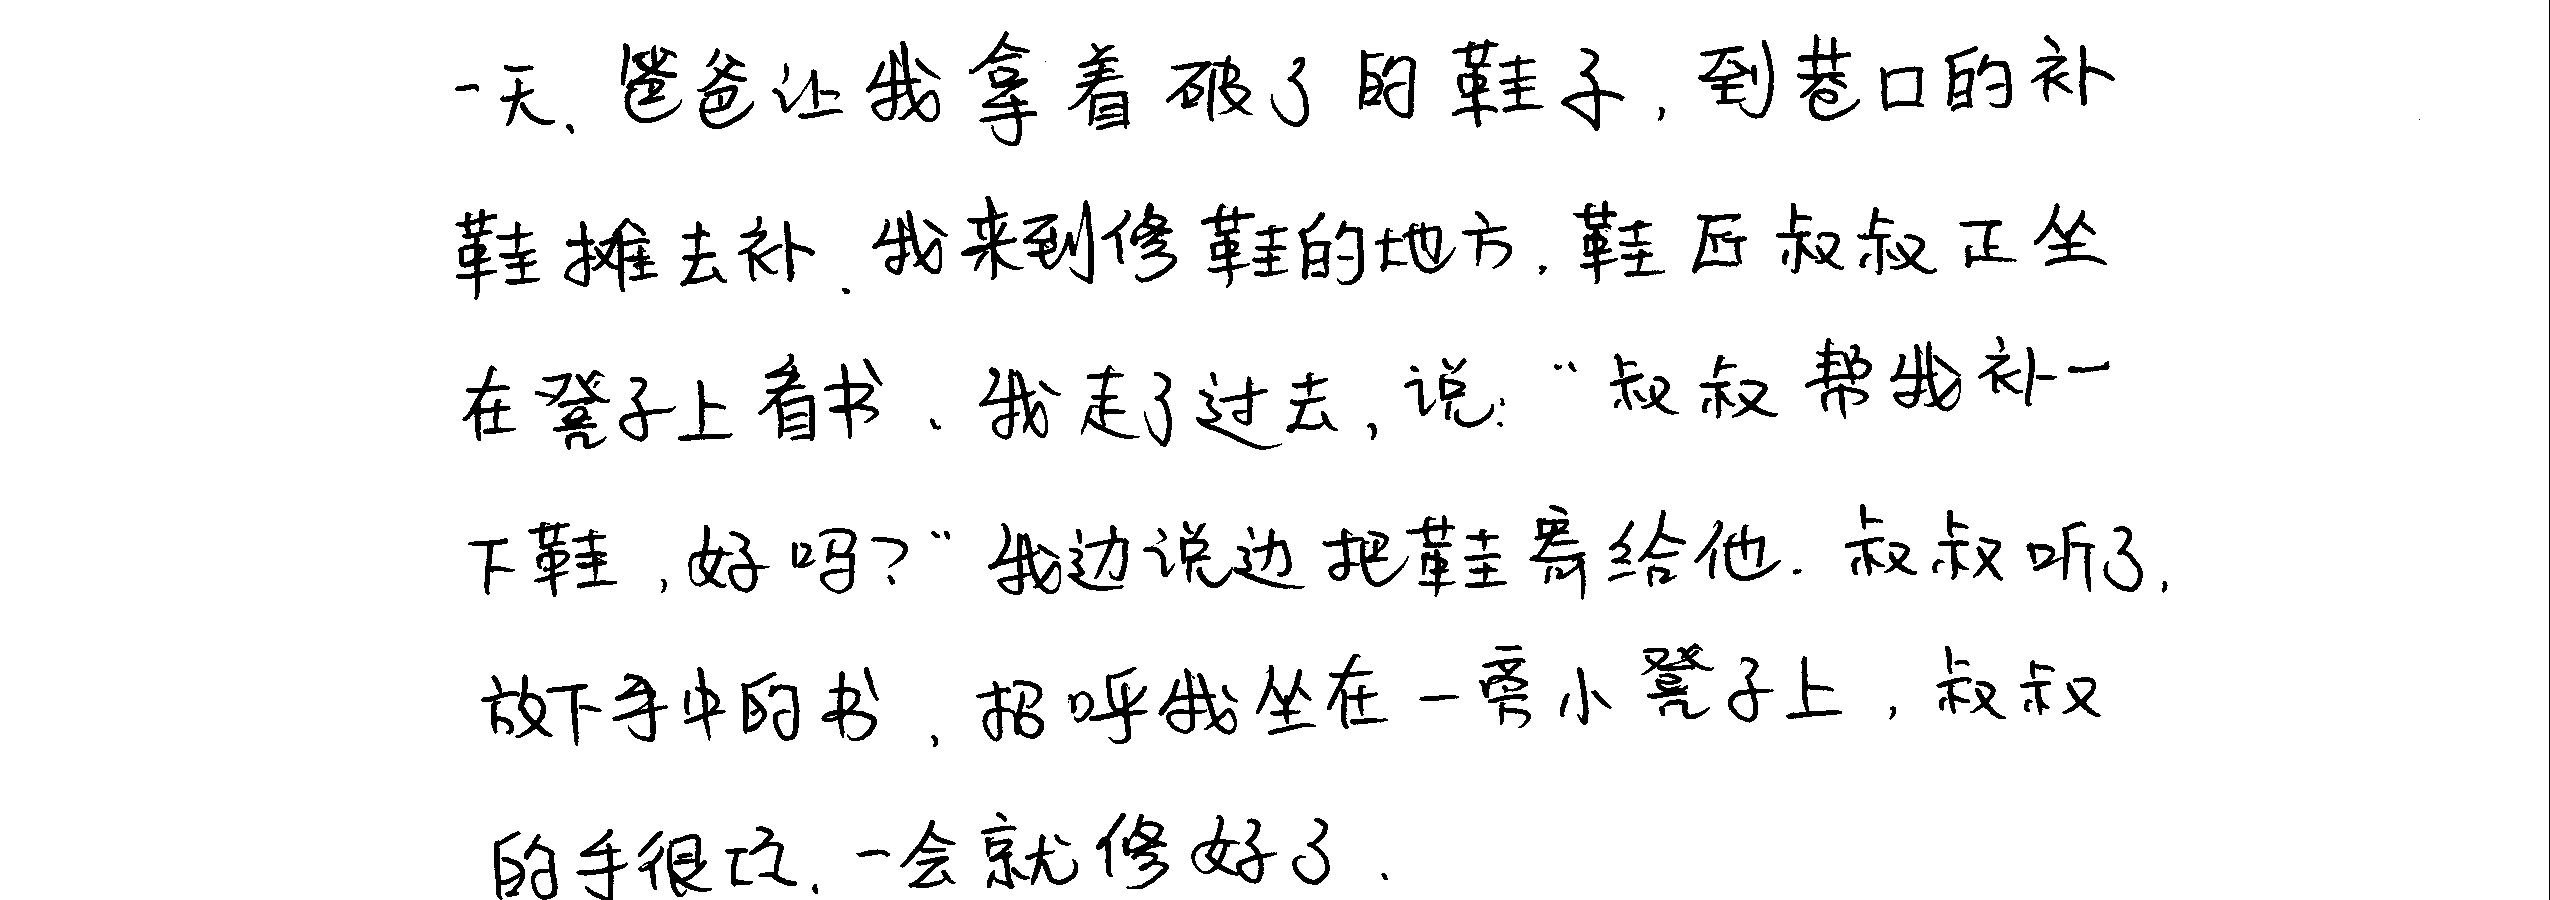 一天、爸爸让我拿着破了的鞋子,到巷口的补
鞋摊去补.我来到修鞋的地方.鞋匠叔叔正坐
在凳子上看书、我走了过去,说:“叔叔帮我补一
下鞋,好吗?”我边说边把鞋寄给他.叔叔听了,
放下手中的书,招呼我坐在一旁小凳子上,叔叔
的手很巧.一会就修好了.